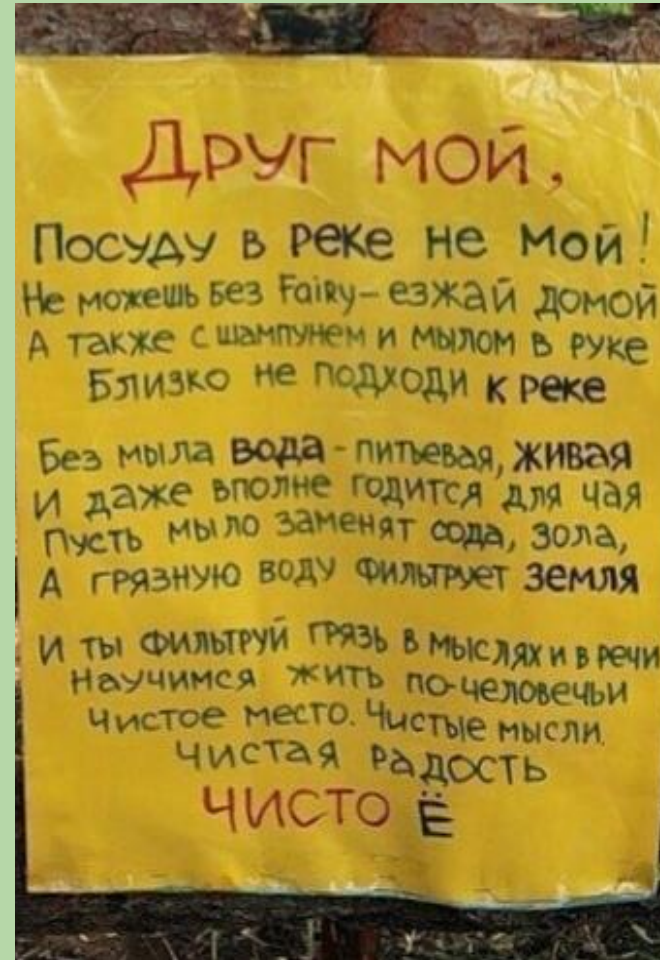 Друг мой,
Посуду в реке не мой!
Не можешь без Fairy - езжай домой
А также с шампунем и мылом в руке
Близко не подходи к реке
Без мыла вода - питьевая, живая
И даже вполне годится для чая
Пусть мыло заменят сода, зола,
А грязную воду фильтрует земля
И ты фильтруй грязь в мыслях и в речи
Научимся жить по-человечьи
Чистое место. Чистые мысли.
Чистая радость
чисто Ё